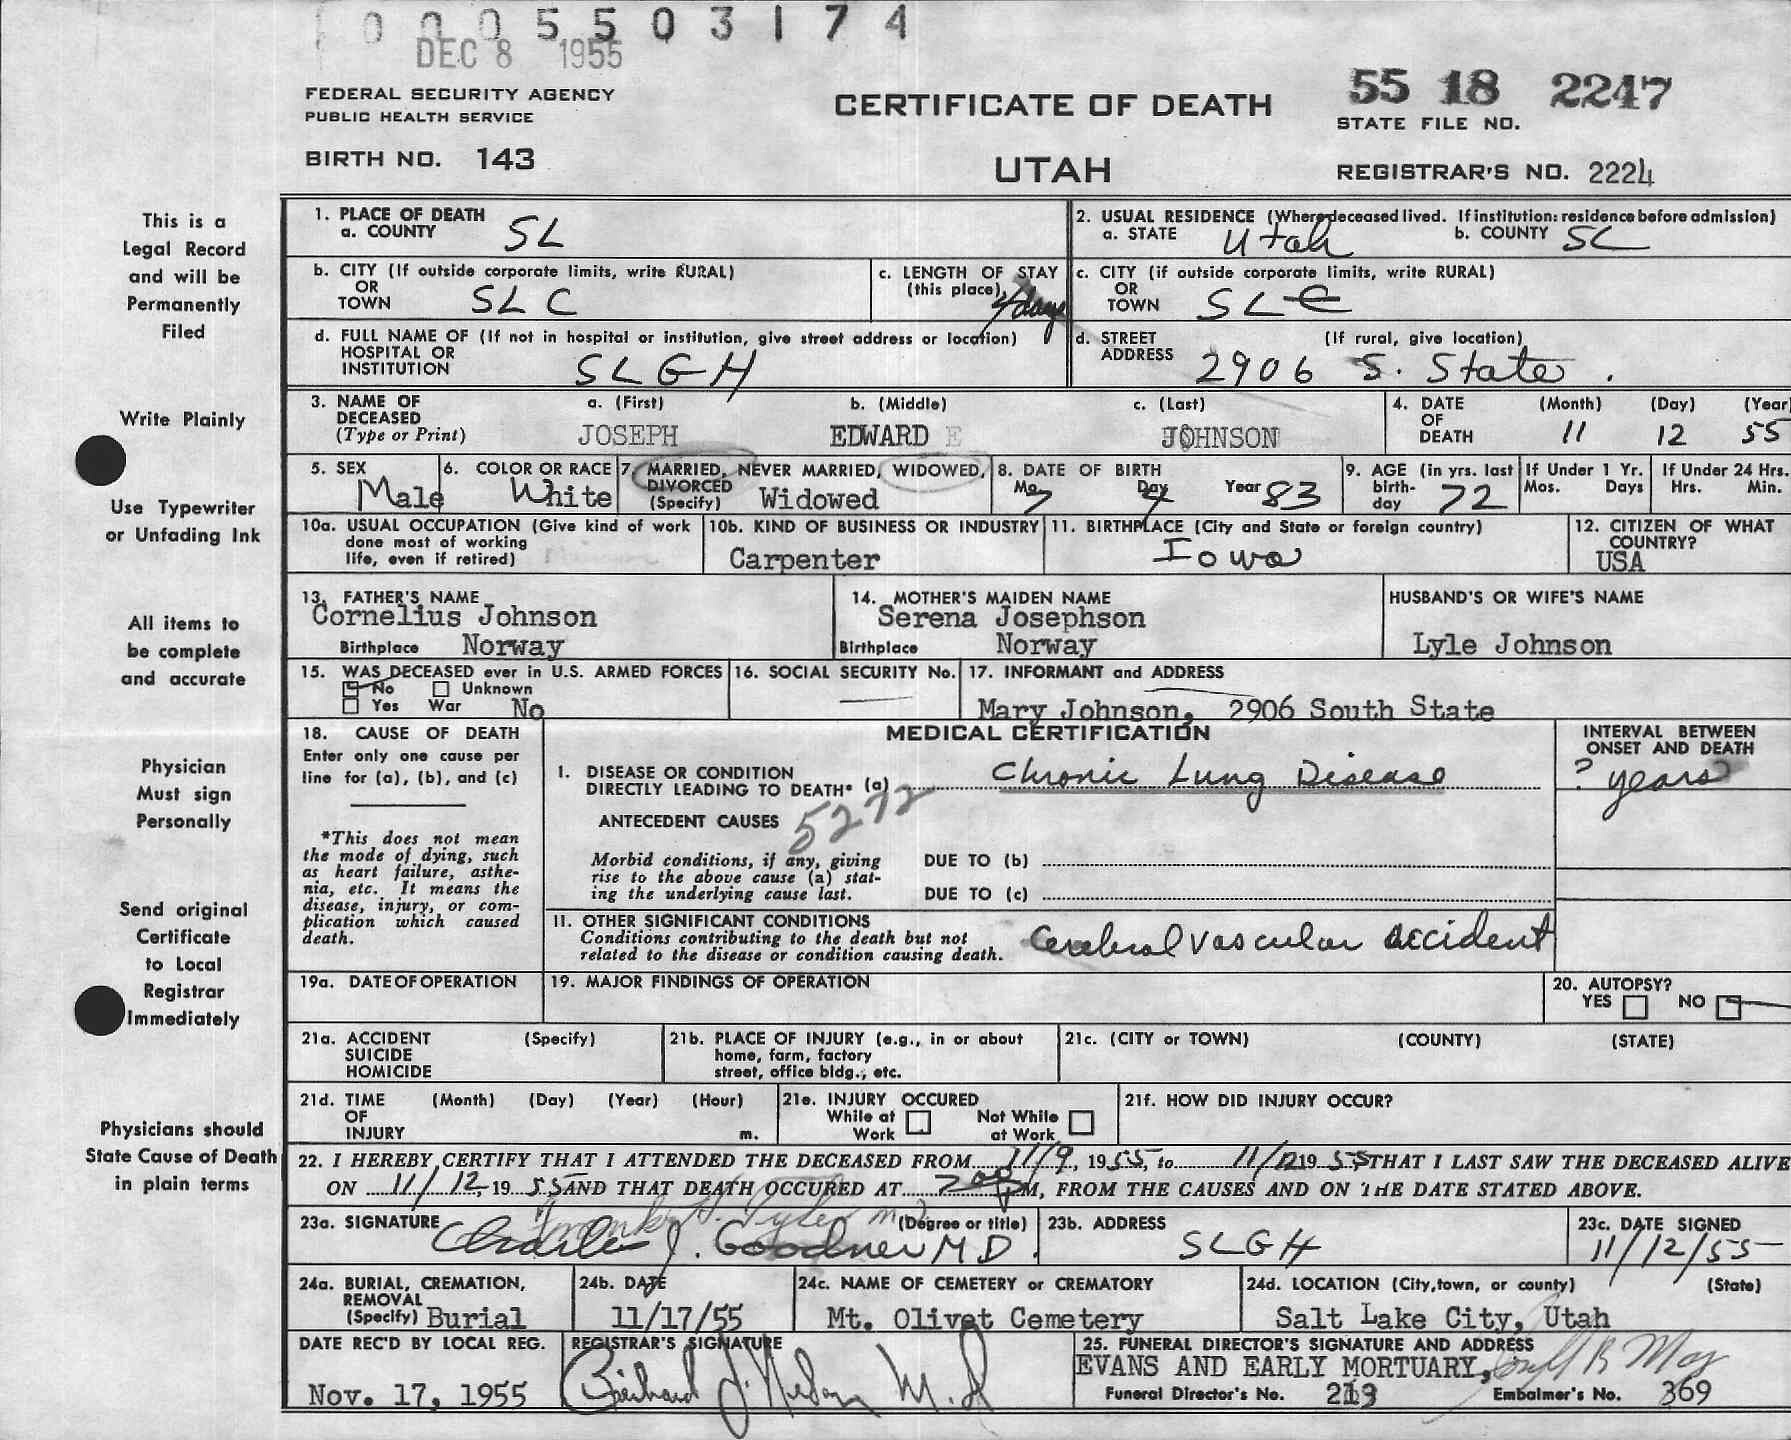 0 0 0 5 5 0 3 1 7 4
DEC 8 1955
FEDERAL SECURITY AGENCY
PUBLIC HEALTH SERVICE
BIRTH NO. 143
CERTIFICATE OF DEATH
UTAH
55 18 2247
STATE FILE NO.
REGISTRAR'S NO. 2224
This is a
Legal Record
and will be
Permanently
Filed
Write Plainly
Use Typewriter
or Unfading Ink
All items to
be complete
and accurate
Physician
Must sign
Personally
Send original
Certificate
to Local
Registrar
Immediately
Physicians should
State Cause of Death
in plain terms
1. PLACE OF DEATH
a. COUNTY SL
2. USUAL RESIDENCE (Where deceased lived. If institution: residence before admission)
a. STATE Utah b. COUNTY SL
b. CITY (If outside corporate limits, write RURAL)
OR
TOWN SLC
c. LENGTH OF STAY
(this place) 4 days
c. CITY (if outside corporate limits, write RURAL)
OR
TOWN SLC
d. FULL NAME OF (If not in hospital or institution, give street address or location)
HOSPITAL OR
INSTITUTION SLGH
d. STREET (If rural, give location)
ADDRESS 2906 S. State.
3. NAME OF DECEASED
(Type or Print)
a. (First) b. (Middle) c. (Last)
JOSEPH EDWARD E JOHNSON
4. DATE OF DEATH
(Month) (Day) (Year)
11 12 55
5. SEX
Male
6. COLOR OR RACE
White
7. MARRIED, NEVER MARRIED, WIDOWED,
DIVORCED
(Specify) Widowed
8. DATE OF BIRTH
Mo. 7 Day 4 Year 83
9. AGE (in yrs. last
birth-
day 72
If Under 1 Yr.
Mos. Days
If Under 24 Hrs.
Hrs. Min.
10a. USUAL OCCUPATION (Give kind of work
done most of working
life, even if retired)
10b. KIND OF BUSINESS OR INDUSTRY
Carpenter
11. BIRTHPLACE (City and State or foreign country)
Iowa
12. CITIZEN OF WHAT
COUNTRY?
USA
13. FATHER'S NAME
Cornelius Johnson
Birthplace Norway
14. MOTHER'S MAIDEN NAME
Serena Josephson
Birthplace Norway
HUSBAND'S OR WIFE'S NAME
Lyle Johnson
15. WAS DECEASED ever in U.S. ARMED FORCES
No Unknown
Yes War No
16. SOCIAL SECURITY No.
17. INFORMANT and ADDRESS
Mary Johnson, 2906 South State
18. CAUSE OF DEATH
Enter only one cause per
line for (a), (b), and (c)
*This does not mean
the mode of dying, such
as heart failure, asthe-
nia, etc. It means the
disease, injury, or com-
plication which caused
death.
MEDICAL CERTIFICATION
I. DISEASE OR CONDITION
DIRECTLY LEADING TO DEATH* (a) Chronic Lung Disease
5272
ANTECEDENT CAUSES
Morbid conditions, if any, giving
rise to the above cause (a) stat-
ing the underlying cause last.
DUE TO (b)
DUE TO (c)
INTERVAL BETWEEN
ONSET AND DEATH
? years
II. OTHER SIGNIFICANT CONDITIONS
Conditions contributing to the death but not
related to the disease or condition causing death.
Cerebral vascular accident
19a. DATE OF OPERATION
19. MAJOR FINDINGS OF OPERATION
20. AUTOPSY?
YES NO
21a. ACCIDENT (Specify)
SUICIDE
HOMICIDE
21b. PLACE OF INJURY (e.g., in or about
home, farm, factory
street, office bldg., etc.
21c. (CITY or TOWN) (COUNTY) (STATE)
21d. TIME (Month) (Day) (Year) (Hour)
OF
INJURY m.
21e. INJURY OCCURED
While at Work Not While at Work
21f. HOW DID INJURY OCCUR?
22. I HEREBY CERTIFY THAT I ATTENDED THE DECEASED FROM 11/9, 1955, to 11/12 1955 THAT I LAST SAW THE DECEASED ALIVE
ON 11/12, 1955 AND THAT DEATH OCCURED AT 200 PM, FROM THE CAUSES AND ON THE DATE STATED ABOVE.
23a. SIGNATURE (Degree or title)
Frank H. Tyler M.D.
Charles J. Goodner MD.
23b. ADDRESS
SLGH
23c. DATE SIGNED
11/12/55
24a. BURIAL, CREMATION,
REMOVAL
(Specify) Burial
24b. DATE
11/17/55
24c. NAME OF CEMETERY or CREMATORY
Mt. Olivet Cemetery
24d. LOCATION (City, town, or county) (State)
Salt Lake City, Utah
DATE REC'D BY LOCAL REG.
Nov. 17, 1955
REGISTRAR'S SIGNATURE
M.D.
25. FUNERAL DIRECTOR'S SIGNATURE AND ADDRESS
EVANS AND EARLY MORTUARY,
Funeral Director's No. Embalmer's No. 369